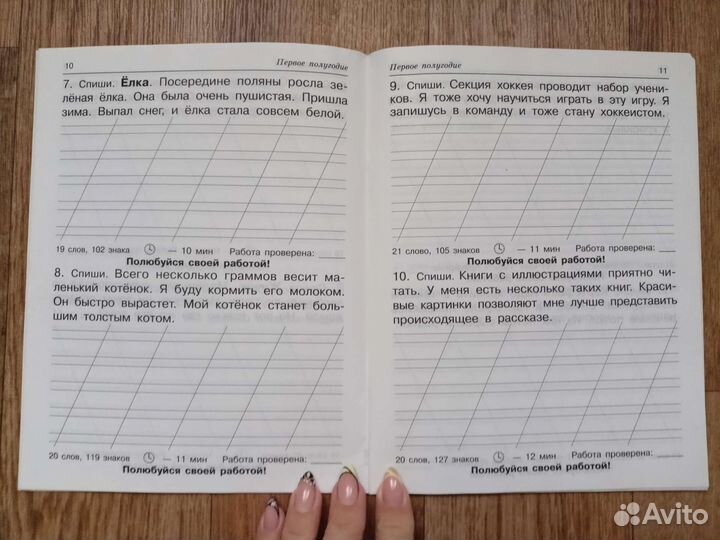 10
Первое полугодие
7. Спиши. Ёлка. Посередине поляны росла зе-
лёная ёлка. Она была очень пушистая. Пришла
зима. Выпал снег, и ёлка стала совсем белой.
19 слов, 102 знака — 10 мин Работа проверена:
Полюбуйся своей работой!
8. Спиши. Всего несколько граммов весит ма-
ленький котёнок. Я буду кормить его молоком.
Он быстро вырастет. Мой котёнок станет боль-
шим толстым котом.
20 слов, 119 знаков — 11 мин Работа проверена:
Полюбуйся своей работой!
Первое полугодие
11
9. Спиши. Секция хоккея проводит набор учени-
ков. Я тоже хочу научиться играть в эту игру. Я
запишусь в команду и тоже стану хоккеистом.
21 слово, 105 знаков — 11 мин Работа проверена:
Полюбуйся своей работой!
10. Спиши. Книги с иллюстрациями приятно чи-
тать. У меня есть несколько таких книг. Краси-
вые картинки позволяют мне лучше представить
происходящее в рассказе.
20 слов, 127 знаков — 12 мин Работа проверена:
Полюбуйся своей работой!
Avito